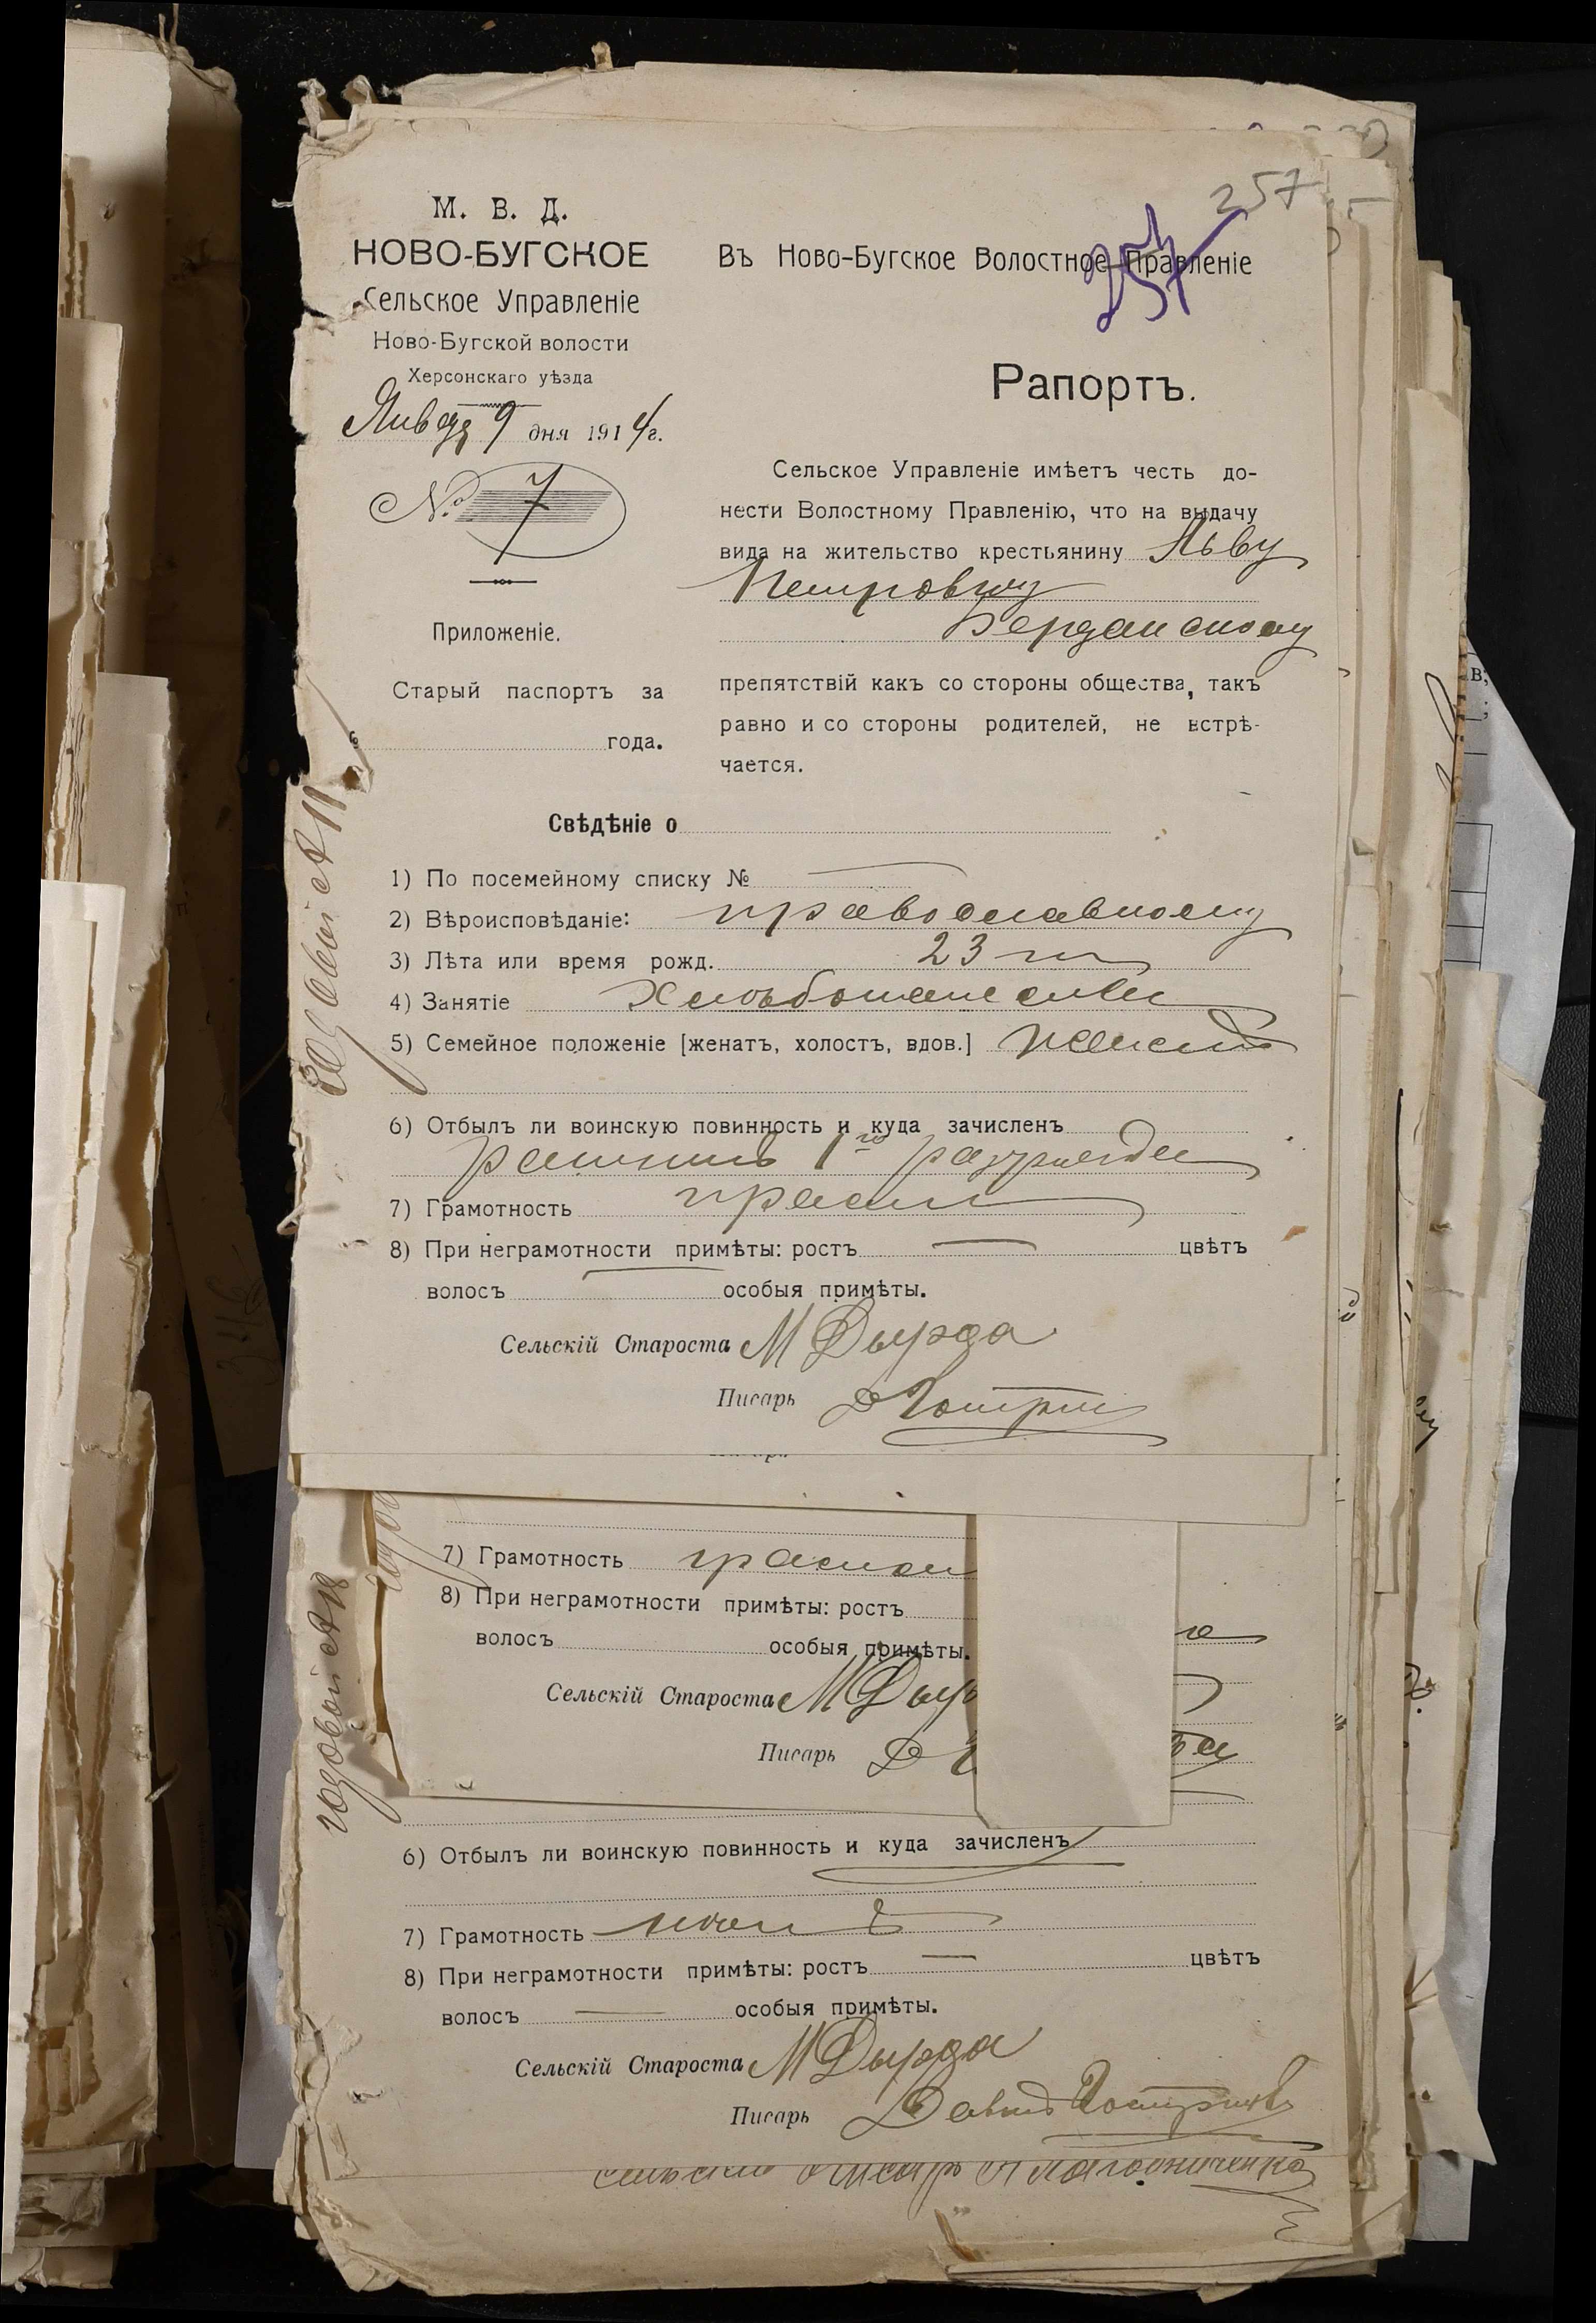 257
254
М. В. Д.
НОВО-БУГСКОЕ
Сельское Управленіе
Ново-Бугской волости
Херсонскаго уѣзда
Января 9 дня 1914г.
№ 7
Приложеніе.
Старый паспортъ за
года.
Въ Ново-Бугское Волостное Правленіе
Рапортъ.
Сельское Управленіе имѣетъ честь до-
нести Волостному Правленію, что на выдачу
вида на жительство крестьянину Льву
Петровичу
Бердянскому
препятствій какъ со стороны общества, такъ
равно и со стороны родителей, не встрѣ-
чается.
Свѣдѣніе о
1) По посемейному списку №
2) Вѣроисповѣданіе: православному
3) Лѣта или время рожд. 23
4) Занятіе
5) Семейное положеніе [женатъ, холостъ, вдов.] женатъ
6) Отбылъ ли воинскую повинность и куда зачисленъ
ратникъ 1го разряда
7) Грамотность
8) При неграмотности примѣты: ростъ цвѣтъ
волосъ особыя примѣты.
Сельскій Староста М Дырда
Писарь Д
годовой
7) Грамотность
8) При неграмотности примѣты: ростъ
волосъ особыя примѣты.
Сельскій Староста М Дыр
Писарь Д
6) Отбылъ ли воинскую повинность и куда зачисленъ
7) Грамотность
8) При неграмотности примѣты: ростъ цвѣтъ
волосъ особыя примѣты.
Сельскій Староста М Дырда
Писарь Давидъ
годовой